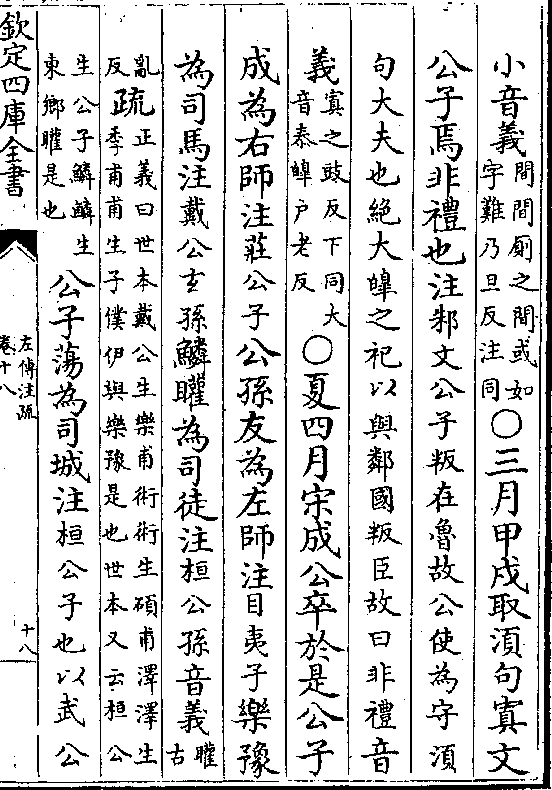 小音義間間廁之間或如字難乃旦反注同○三月甲戌取湏句寘文
公子焉非禮也注邾文公子叛在魯故公使為守湏
句大夫也絶大皥之祀以與鄰國叛臣故曰非禮音
義寘之豉反下同大音泰皥户老反○夏四月宋成公卒於是公子
成為右師注莊公子公孫友為左師注目夷子樂豫
為司馬注戴公玄孫鱗矔為司徒注桓公孫音義矔古
亂反疏正義曰世本戴公生樂甫術術生碩甫澤澤生季甫甫生子僕伊與樂豫是也世本又云桓公
生公子鱗鱗生東鄉矔是也公子蕩為司城注桓公子也以武公
欽定四庫全書
左傳注疏
卷十八
十八